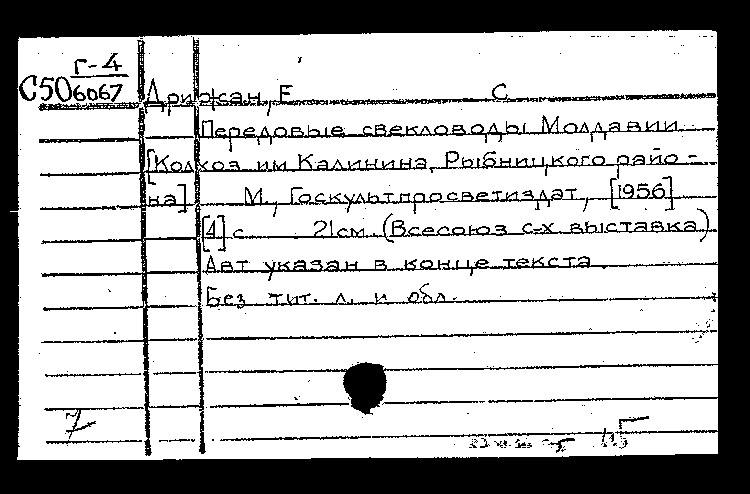 Г-4
С50 6067
Дрижан, Е С
Передовые свекловоды Молдавии
[Колхоз им Калинина, Рыбницкого райо-
на] М., Госкультпросветиздат, [1956]
[4] с 21см. (Всесоюз с-х выставка)
Авт указан в конце текста.
Без тит. л. и обл.
7